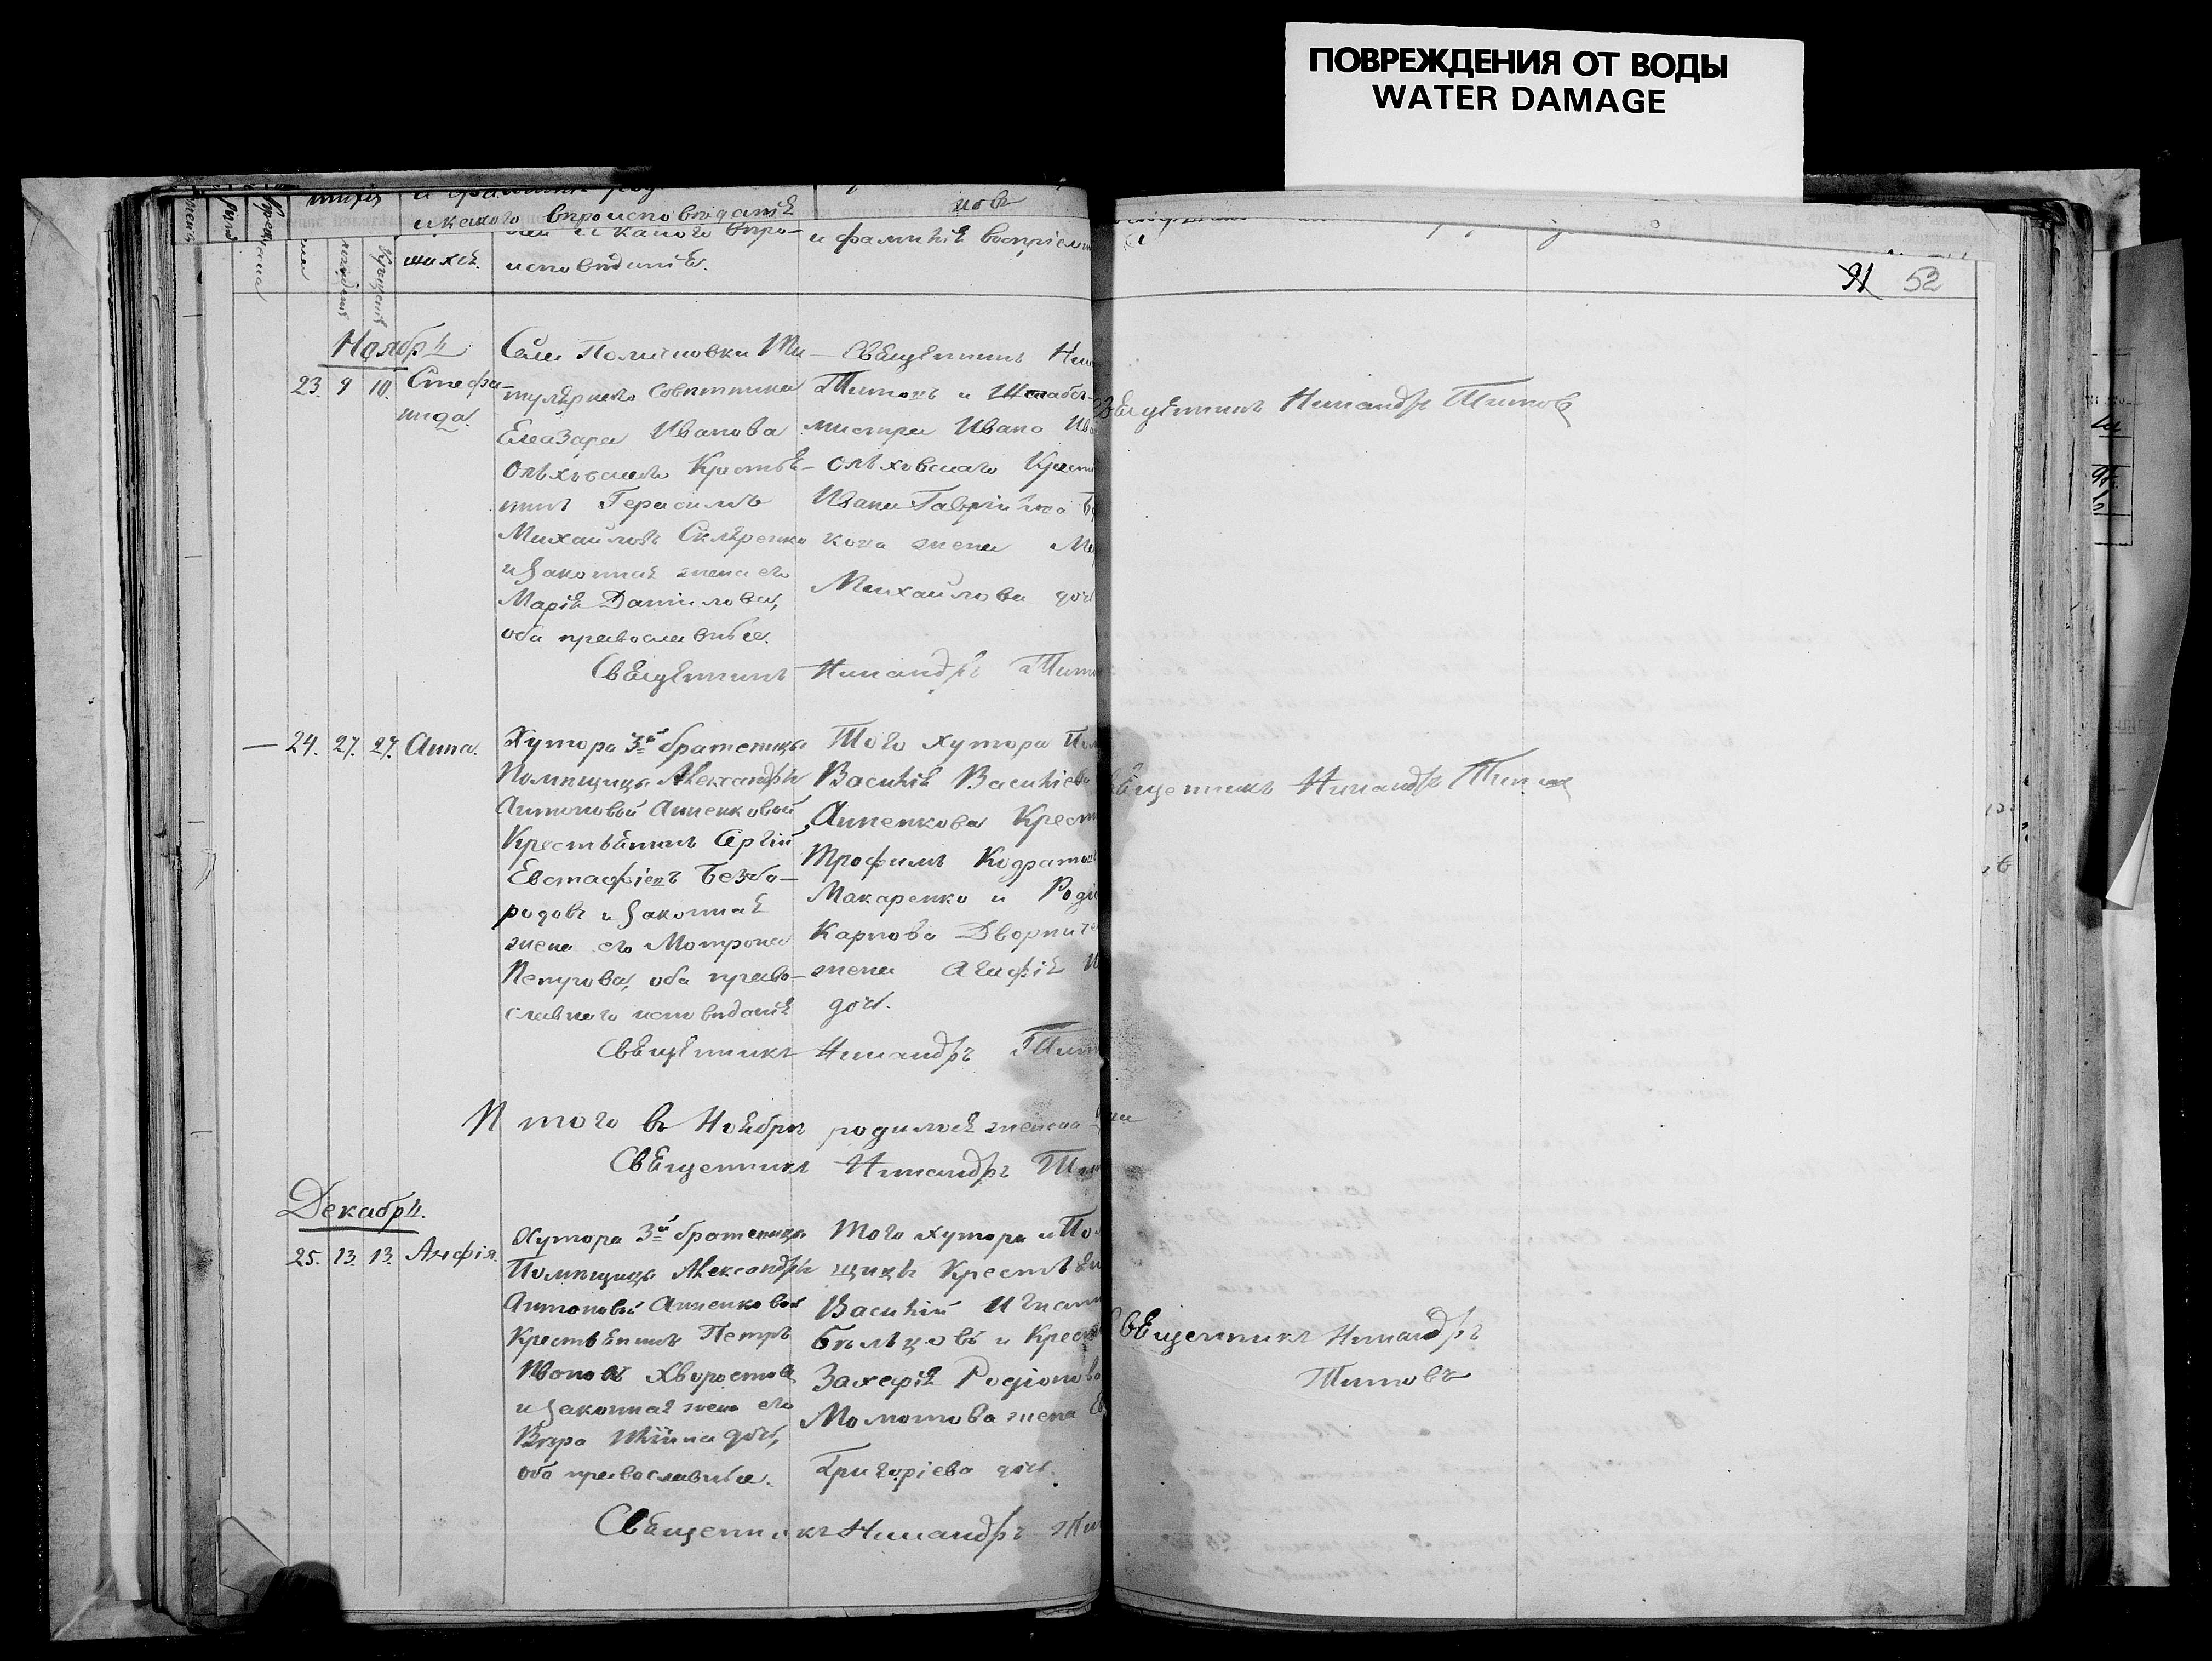 ПОВРЕЖДЕНИЯ ОТ ВОДЫ
WATER DAMAGE
и какого вѣроисповѣданія
исповѣданія.
и фамилія воспріем
91 52
Ноябрь
23. 9 10. Стефа-
нида.
Села Ти-
тулярнаго Совѣтника
Елеазара Иванова
Ольховскаго Крестья-
нинъ Герасимъ
Михайловъ Скляренко
и законная жена его
Марія Данилова,
оба православные.
Священникъ
Титовъ и Штабсъ-
мистра Ивана
Ольховскаго Крест
Ивана Гаврилова
кова жена
Михайлова дочь
Священникъ Никандръ Тит
Священникъ Никандръ Титовъ
24. 27. 27. Анна.
Хутора 3й братеницы
Помѣщицы Александры
Антоновой Анненковой
Крестьянинъ Сергій
Евстафіевъ Безбо-
родовъ и законная
жена его Матрона
Петрова, оба право-
славнаго исповѣданія
Того хутора
Василія Васильева
Анненкова Крест
Трофимъ Кодратов
Макаренко и
Карпова Дворниче
жена Агафія
дочь.
Священникъ Никандръ Тит
Священникъ Никандръ Титов
Итого въ Ноябрѣ родилося женска
Священникъ Никандръ Тит
Декабрь.
25. 13. 13. Анфія.
Хутора 3й братеницы
Помѣщицы Александры
Антоновой Анненковой
Крестьянинъ Петръ
Ивановъ Хворостовъ
и законная жена его
Вѣра дочь,
оба православные.
Того хутора и По
щицы Крестьян
Василій Игнат
Бѣльцовъ и Крес
Захарія Родіонова
Момотова жена
Григоріева дочь.
Священникъ Никандръ Ти
Священникъ Никандръ
Титовъ